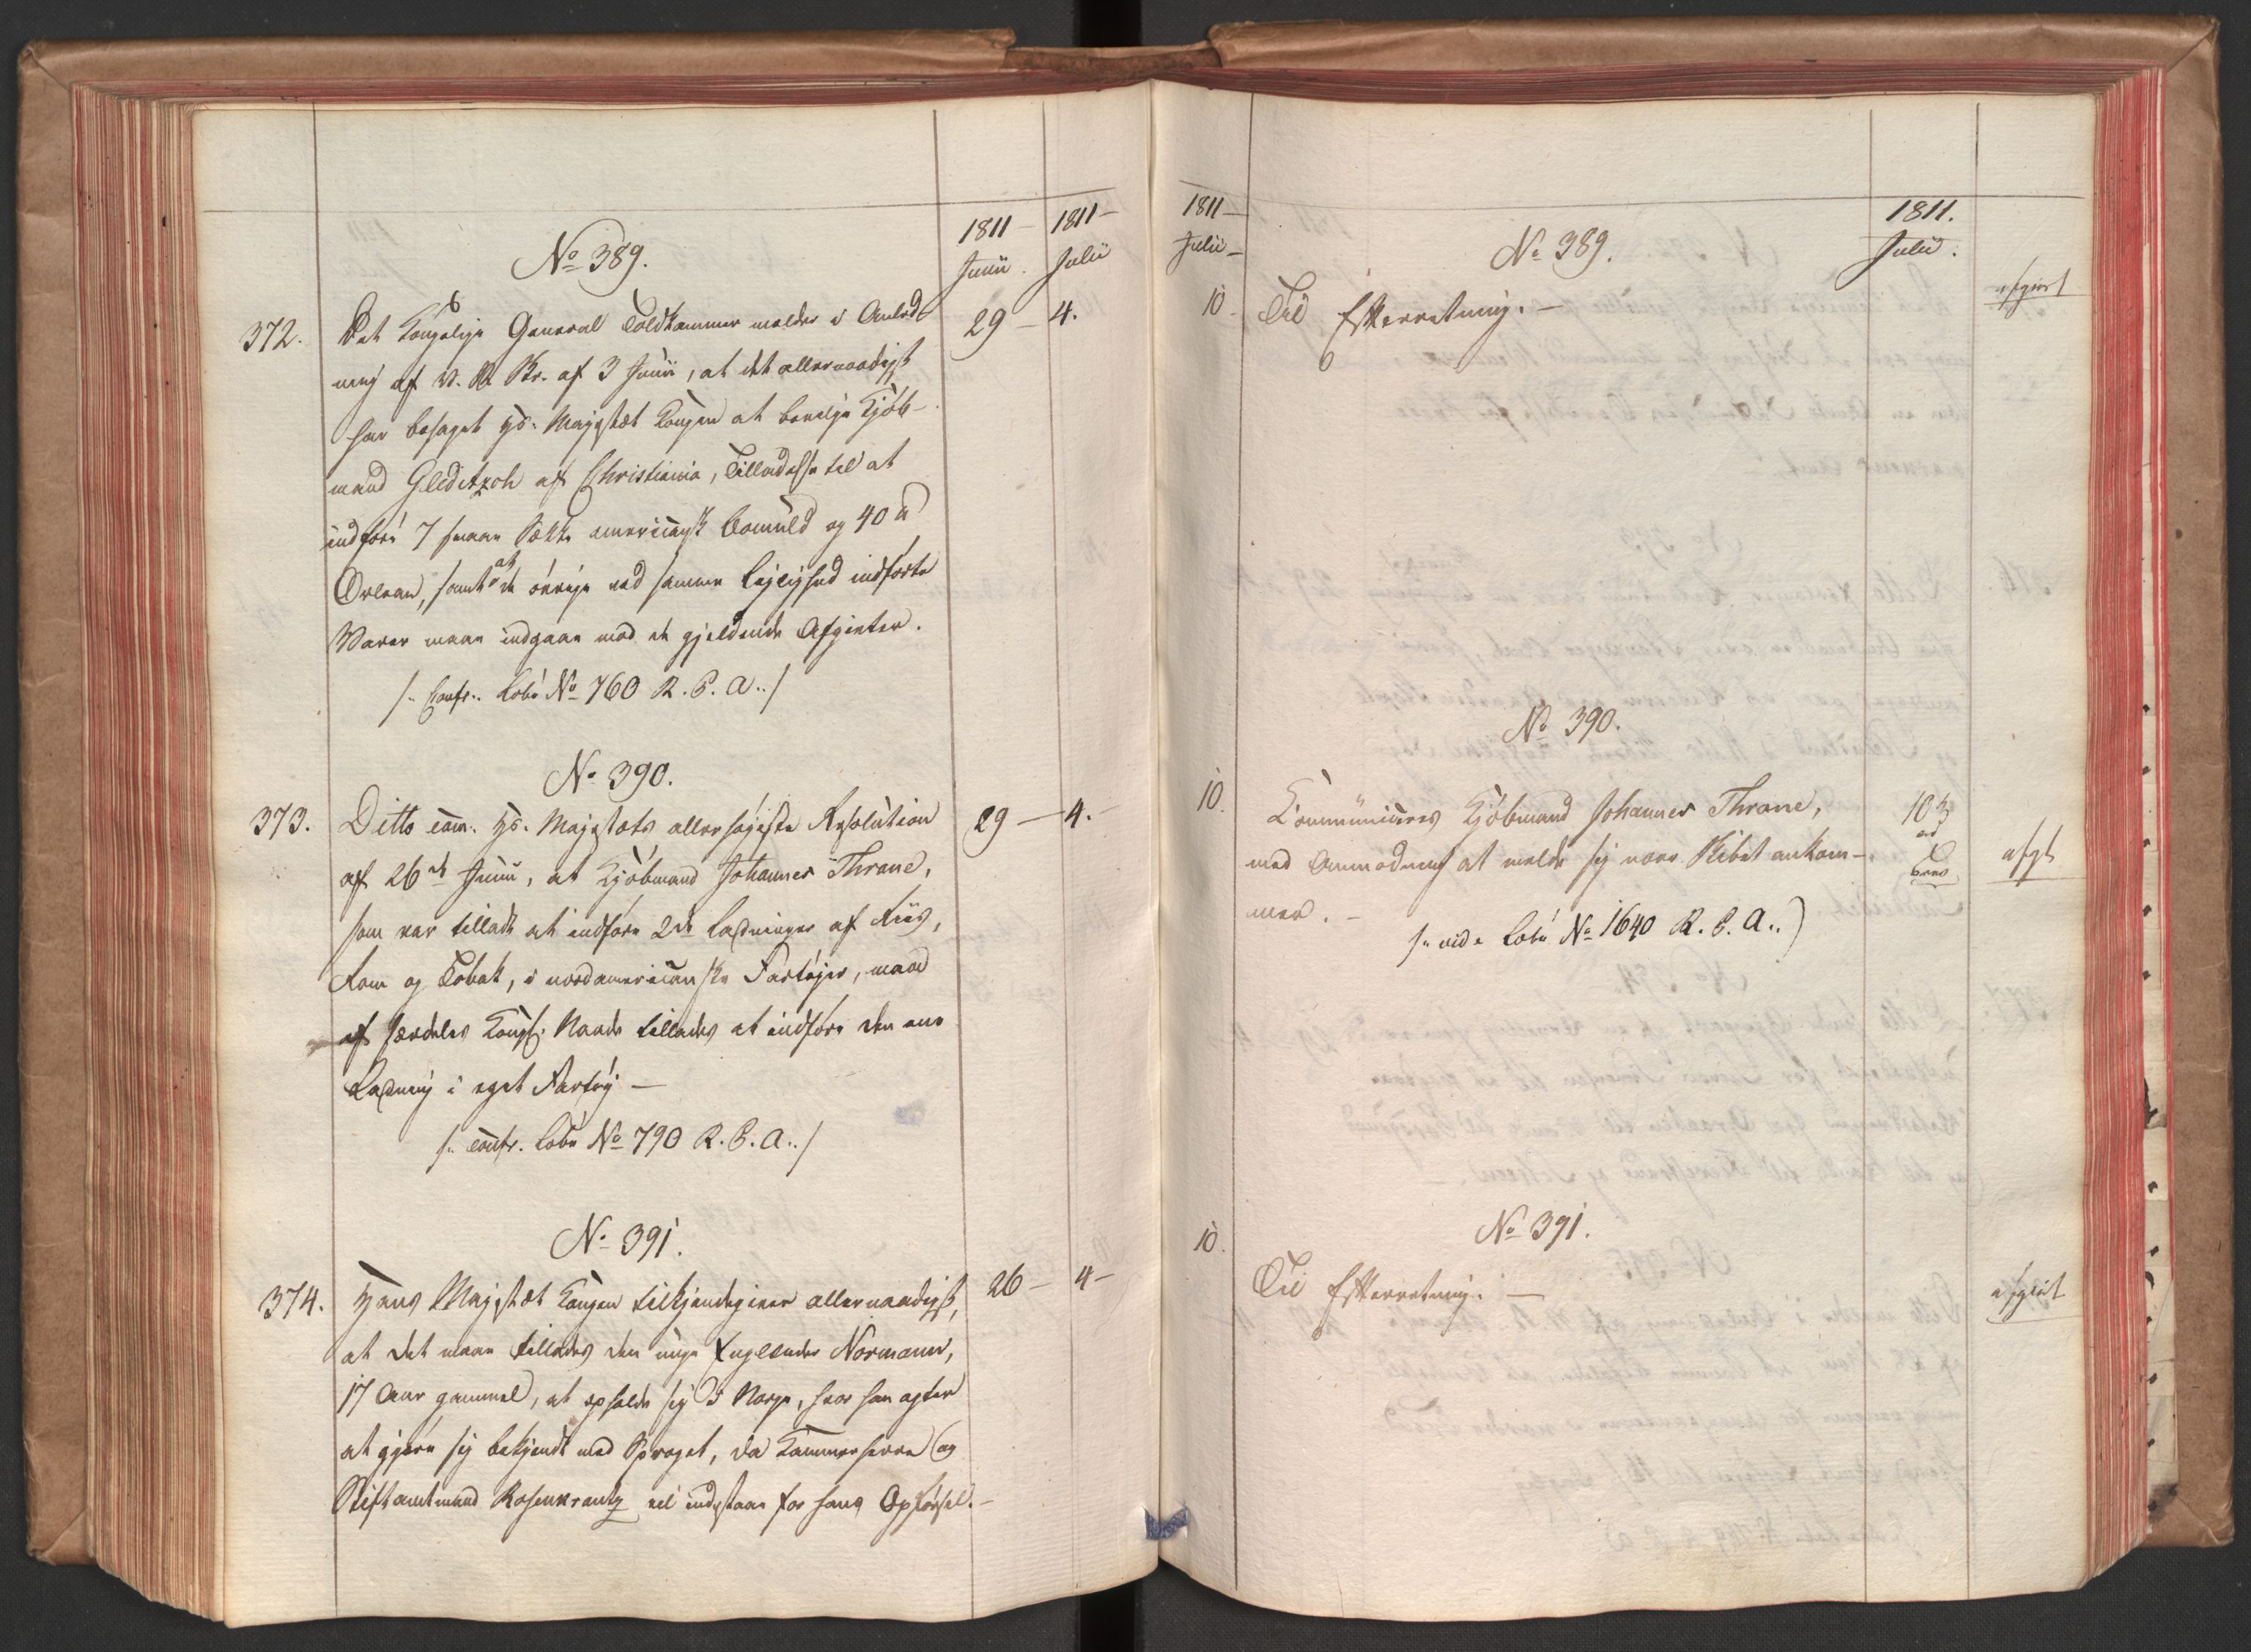 1811 – 1811 –
Junii. Julii
No 389.
372. Det Kongelige General Toldkammer melder i Anled- 29 – 4.
ning af Br. af 3 Junii, at det allernaadigst
har behaget Hs. Majestæt Kongen at bevilge Kjøb-
mand Gleditzch af Christiania, Tilladelse til at
indføre 7 smaae Sække americansk Bomuld og 40 ℔
Orlean, samt at de øvrige ved samme Lejlighed indførte
Varer maae indgaae mod de gjeldende Afgivter.
/: Confr. Lobe No 760 R. C. A. :/
No 390.
373. Ditto com. Hs. Majestæts allerhøjeste Resolution 29 – 4.
af 26de Junii, at Kjøbmand Johannes Thrane,
som var tilladt at indføre 2de Ladninger af Riis,
Rom og Tobak, i nordamericanske Fartøjer, maae
af særdeles Kongl. Naade tillades at indføre den ene
Ladning i eget Fartøj –
/: confr. Lobe No 790 R. C. A. :/
No 391.
374. Hans Majestæt Kongen tilkjendegiver allernaadigst, 26 – 4 –
at det maae tillades den unge Englænder Normann,
17 Aar gammel, at opholde sig i Norge, hvor han agter
at gjøre sig bekjendt med Sproget, da Kammerherre og
Stiftamtmand Rosenkrantz vil indestaae for hans Opførsel. –
1811 –
Julii –
1811.
Julii.
No 389.
10. Til Efterretning. – afgiort
No 390.
10. Communiceres Kjøbmand Johannes Thrane, 103
med Anmodning at melde sig naar Skibet ankom- afgt
mer. –
/: vide Lobe No 1640 R. C. A. :/
No 391.
10. Til Efterretning. – afgiort